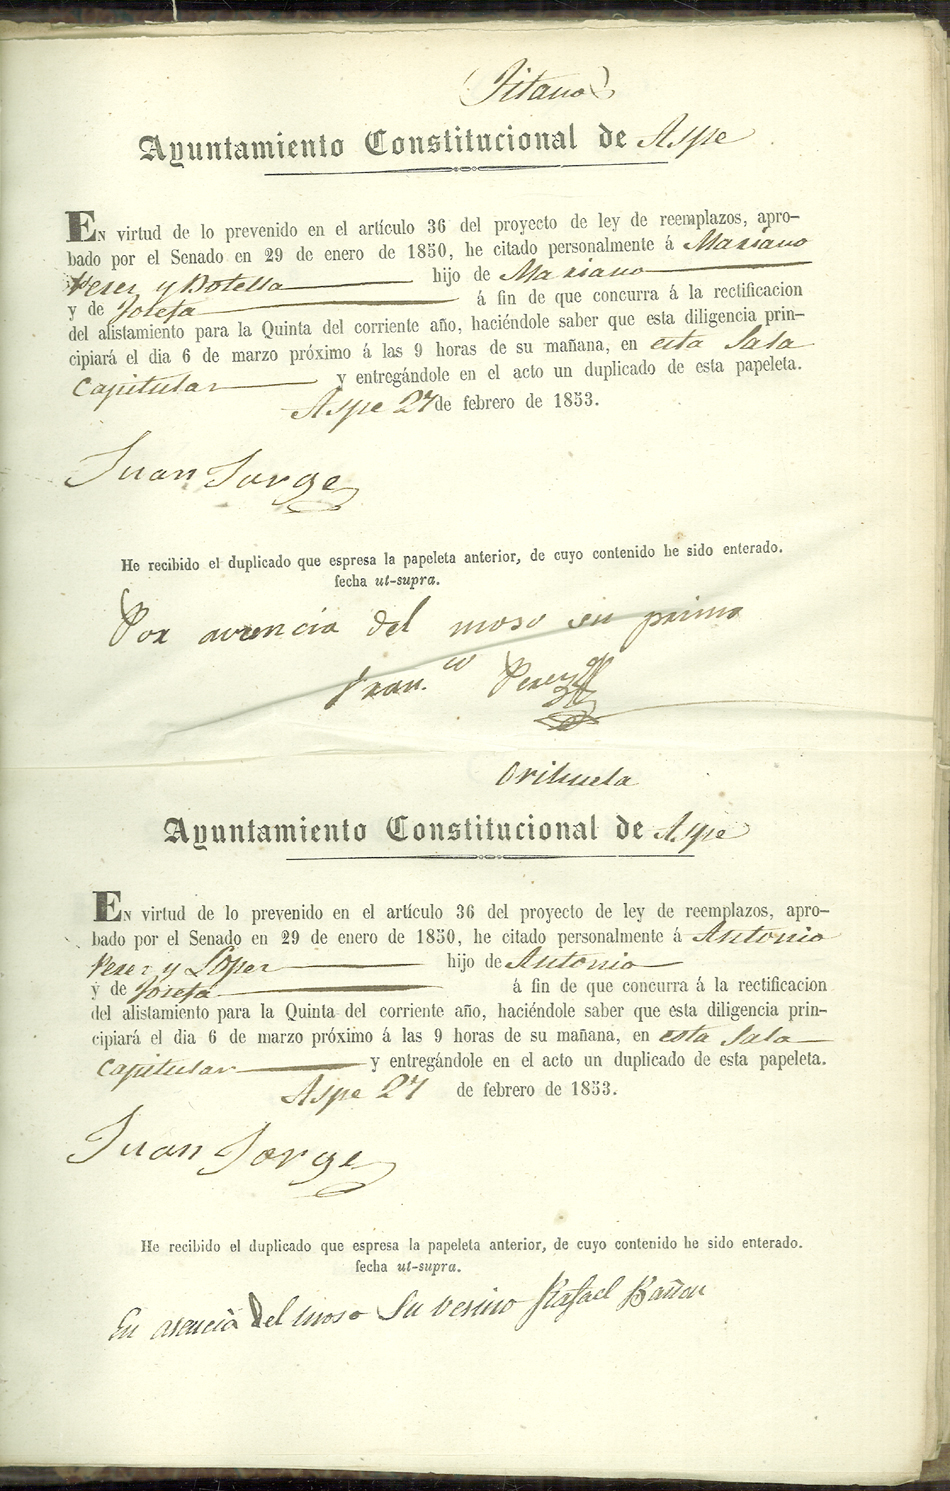 (Jitano)
Ayuntamiento Constitucional de Aspe
EN virtud de lo prevenido en el artículo 36 del proyecto de ley de reemplazos, apro-
bado por el Senado en 29 de enero de 1850, he citado personalmente á Mariano
Perez y Botella hijo de Mariano
y de Josefa á fin de que concurra á la rectificacion
del alistamiento para la Quinta del corriente año, haciéndole saber que esta diligencia prin-
cipiará el dia 6 de marzo próximo á las 9 horas de su mañana, en esta Sala
Capitular y entregándole en el acto un duplicado de esta papeleta.
Aspe 27 de febrero de 1853.
Juan Jorge
He recibido el duplicado que espresa la papeleta anterior, de cuyo contenido he sido enterado.
fecha ut-supra.
Por aucencia del moso su primo
Fran.co Perez
Orihuela
Ayuntamiento Constitucional de Aspe
EN virtud de lo prevenido en el artículo 36 del proyecto de ley de reemplazos, apro-
bado por el Senado en 29 de enero de 1850, he citado personalmente á Antonio
Perez y Lopez hijo de Antonio
y de Josefa á fin de que concurra á la rectificacion
del alistamiento para la Quinta del corriente año, haciéndole saber que esta diligencia prin-
cipiará el dia 6 de marzo próximo á las 9 horas de su mañana, en esta Sala
Capitular y entregándole en el acto un duplicado de esta papeleta.
Aspe 27 de febrero de 1853.
Juan Jorge
He recibido el duplicado que espresa la papeleta anterior, de cuyo contenido he sido enterado.
fecha ut-supra.
En asencia del moso Su vesino Rafael